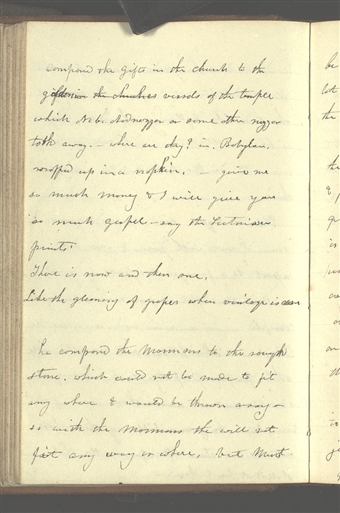 compard the gifts in the church to the
vessels of the temple
which Neb. or some other
took away.— where are they? in. Babylon.
wrapped up in a napkin. — give me
so much money & I will give you
so much gospel — say the
priests'
There is now and then one.
Like the gleaning of grapes when vintage is
he compard the Mormons to the rough
stone. which could not be made to fit
any where & would be thrown away —
so with the Mormons the will not
fit any way or where, but must